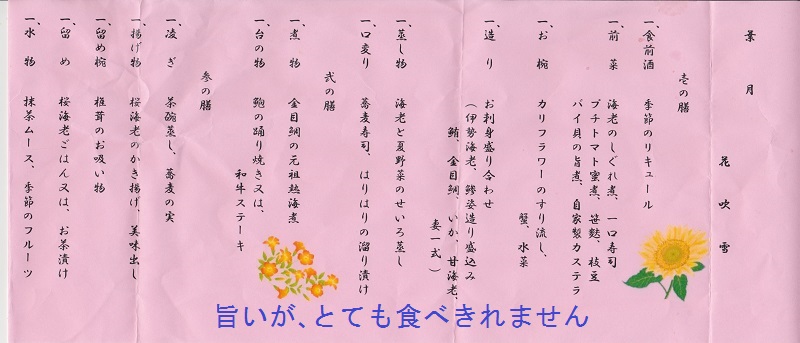 葉月
花吹雪
壱の膳
一、食前酒 季節のリキュール
一、前菜 海老のしぐれ煮、一口寿司
プチトマト蜜煮、笹麩、枝豆
バイ貝の旨煮、自家製カステラ
一、お椀 カリフラワーのすり流し、
蟹、水菜
一、造り お刺身盛り合わせ
(伊勢海老、鯵姿造り盛込み
鮪、金目鯛、いか、甘海老、
妻一式)
一、蒸し物 海老と夏野菜のせいろ蒸し
一、口変り 蕎麦寿司、はりはりの溜り漬け
弐の膳
一、煮物 金目鯛の元祖熱海煮
一、台の物 鮑の踊り焼き又は、
和牛ステーキ
参の膳
一、凌ぎ 茶碗蒸し、蕎麦の実
一、揚げ物 桜海老のかき揚げ、美味出し
一、留め椀 椎茸のお吸い物
一、留め 桜海老ごはん又は、お茶漬け
一、水物 抹茶ムース、季節のフルーツ
旨いが、とても食べきれません